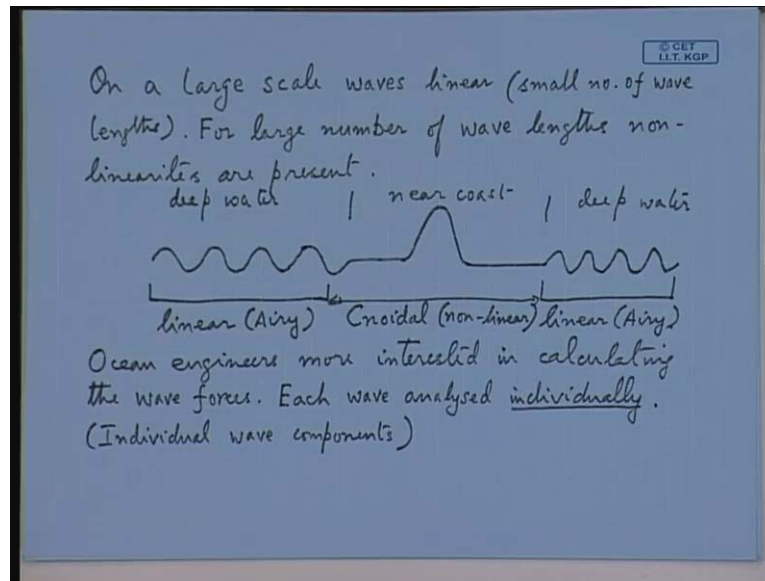 © CET
I.I.T. KGP
On a large scale waves linear (small no. of wave
lengths). For large number of wave lengths non-
linearities are present.
deep water | near coast | deep water
linear (Airy) Cnoidal (non-linear) linear (Airy)
Ocean engineers more interested in calculating
the wave forces. Each wave analysed individually.
(Individual wave components)